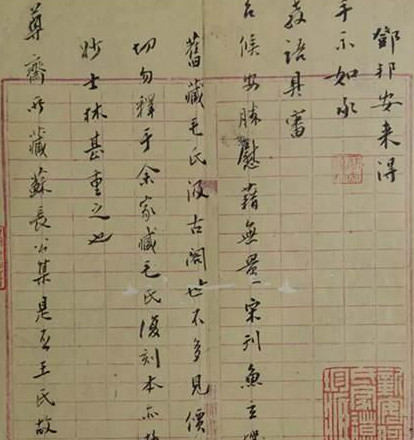 鄧邦安来得
手示如承
教语具審
台候安勝慰藉無量宋刊魚玄
舊藏毛氏汲古阁世不多見價
切勿釋手余家藏毛氏復刻本亦
妙士林甚重之也
尊齋所藏蘇長公集是否王氏故